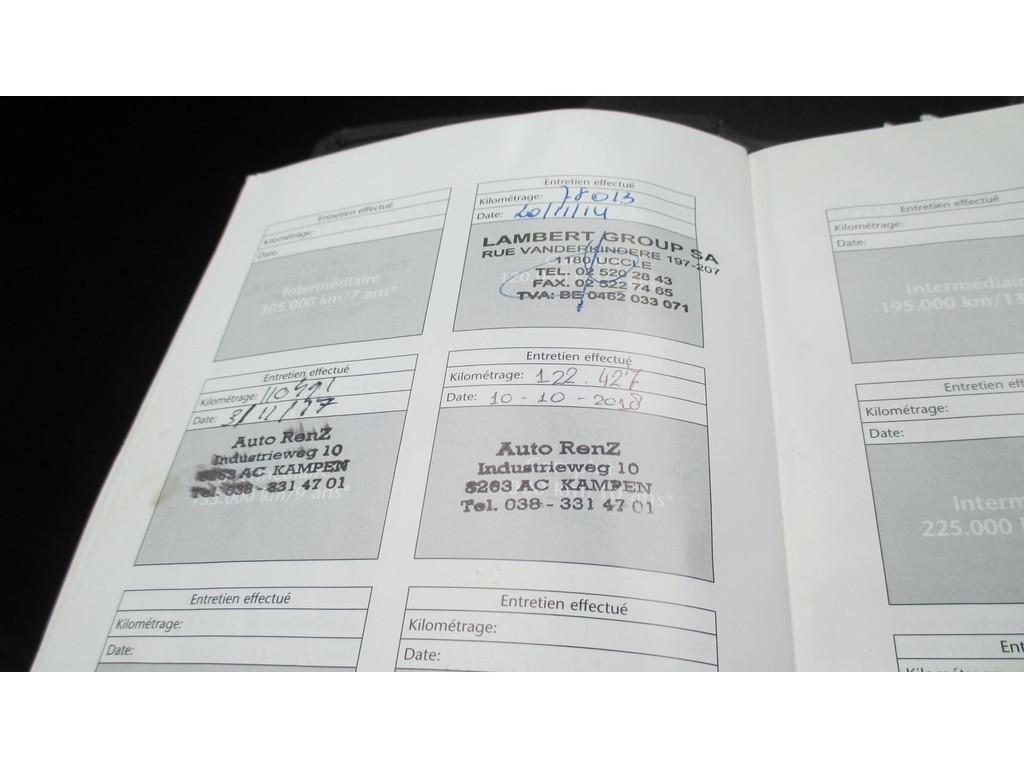 Entretien effectué
Kilométrage:
Date:
Intermédiaire
105.000 km/7 ans*
Entretien effectué
Kilométrage: 78013
Date: 20/11/14
LAMBERT GROUP SA
RUE VANDERKINDERE 197-207
1180 UCCLE
TEL. 02 520 28 43
FAX. 02 522 74 65
TVA: BE 0462 033 071
Entretien effectué
Kilométrage:
Date: 3/11/17
Auto RenZ
Industrieweg 10
8263 AC KAMPEN
Tel. 038 - 331 47 01
km/9 ans*
Entretien effectué
Kilométrage: 122.427
Date: 10-10-2018
Auto RenZ
Industrieweg 10
8263 AC KAMPEN
Tel. 038 - 331 47 01
Entretien effectué
Kilométrage:
Date:
Entretien effectué
Kilométrage:
Date:
Entretien effectué
Kilométrage:
Date:
Intermédiair
195.000 km/13
Entretien eff
Kilométrage:
Date:
Interm
225.000
Ent